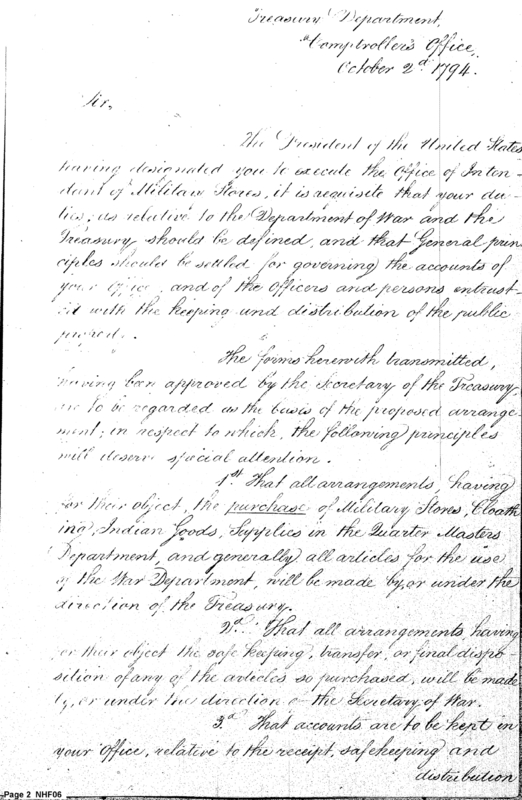 Treasury Department,
Comptroller's Office,
October 2d 1794.
Sir,
The President of the United States
having designated you to execute the Office of Inten-
dant of Military Stores, it is requisite that your du-
ties, as relative to the Department of War and the
Treasury should be defined, and that General prin
ciples should be settled for governing the accounts of
your Office, and of the officers and persons entrust-
ed with the keeping and distribution of the public
The forms herewith transmitted,
having been approved by the Secretary of the Treasury,
are to be regarded as the basis of the proposed arrange-
ment; in respect to which, the following principles
will deserve special attention.
1st That all arrangements, having
for their object, the purchase of Military Stores, Cloath
ing, Indian Goods, Supplies in the Quarter Masters
Department, and generally all articles for the use
of the War Department, will be made by, or under the
direction of the Treasury.
2d That all arrangements, having
for their object the safe keeping, transfer, or final dispo-
sition of any of the articles so purchased, will be made
by, or under the direction of the Secretary of War.
3d That accounts are to be kept in
your Office, relative to the receipt, safekeeping and
distribution
Page 2 NHF06